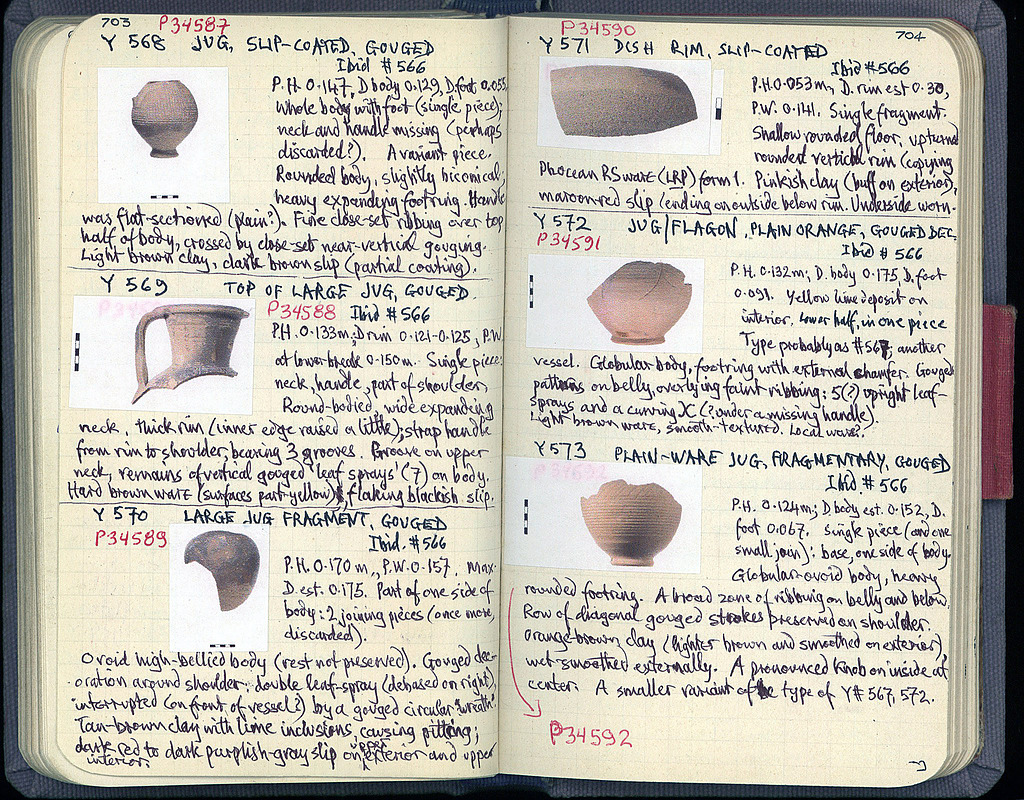 703 P34587
Y 568 JUG, SLIP-COATED, GOUGED
Ibid #566
P.H. 0.147, D body 0.129, D.foot 0.055,
Whole body with foot (single piece);
neck and handle missing (perhaps
discarded?). A variant piece.
Rounded body, slightly biconical,
heavy expanding footring. Handle
was flat-sectioned (plain?). Fine close-set ribbing over top
half of body, crossed by close-set near-vertical gouging.
Light brown clay, dark brown slip (partial coating).
Y 569 TOP OF LARGE JUG, GOUGED
P34588 Ibid #566
P.H. 0.133m, D rim 0.121-0.125, P.W.
at lower break 0.150m. Single piece:
neck, handle, part of shoulder,
Round-bodied, wide expanding
neck, thick rim (inner edge raised a little); strap handle
from rim to shoulder, bearing 3 grooves. Groove on upper
neck, remains of vertical gouged 'leaf sprays' (7) on body.
Hard brown ware (surfaces part-yellow), flaking blackish slip.
Y 570 LARGE JUG FRAGMENT, GOUGED
P34589 Ibid. #566
P.H. 0.170 m., P.W. 0.157, max
D. est. 0.175. Part of one side of
body: 2 joining pieces (once more,
discarded).
Ovoid high-bellied body (rest not preserved). Gouged dec-
oration around shoulder: double leaf-spray (debased on right),
interrupted (on front of vessel?) by a gouged circular 'wreath'.
Tan-brown clay with lime inclusions, causing pitting;
dark red to dark purplish-gray slip on exterior and upper
interior.
P34590 704
Y 571 DISH RIM, SLIP-COATED
Ibid #566
P.H. 0.053m, D. rim est 0.30,
P.W. 0.141. Single fragment.
Shallow rounded floor, upturned
rounded vertical rim (copying
Phocean RS ware (LRP) form 1. Pinkish clay (buff on exterior),
maroon-red slip (ending on outside below rim. Underside worn.
Y 572 JUG/FLAGON, PLAIN ORANGE, GOUGED DEC.
P34591 Ibid # 566
P.H. 0.132m; D. body 0.175, D. foot
0.091. Yellow lime deposit on
interior. Lower half, in one piece
Type probably as #567, another
vessel. Globular body, footring with external chamfer. Gouged
patterns on belly, overlying faint ribbing: 5(?) upright leaf-
sprays and a curving X (? under a missing handle).
Light brown ware, smooth-textured. Local ware?.
Y 573 PLAIN-WARE JUG, FRAGMENTARY, GOUGED
Ibid. #566
P.H. 0.124m; D body est. 0.152, D.
foot 0.067. Single piece (and one
small join): base, one side of body.
Globular-ovoid body, heavy
rounded footring. A broad zone of ribbing on belly and below.
Row of diagonal gouged strokes preserved on shoulder.
Orange-brown clay (lighter brown and smoothed on exterior),
wet-smoothed externally. A pronounced knob on inside at
center. A smaller variant of the type of Y# 567, 572.
P34592